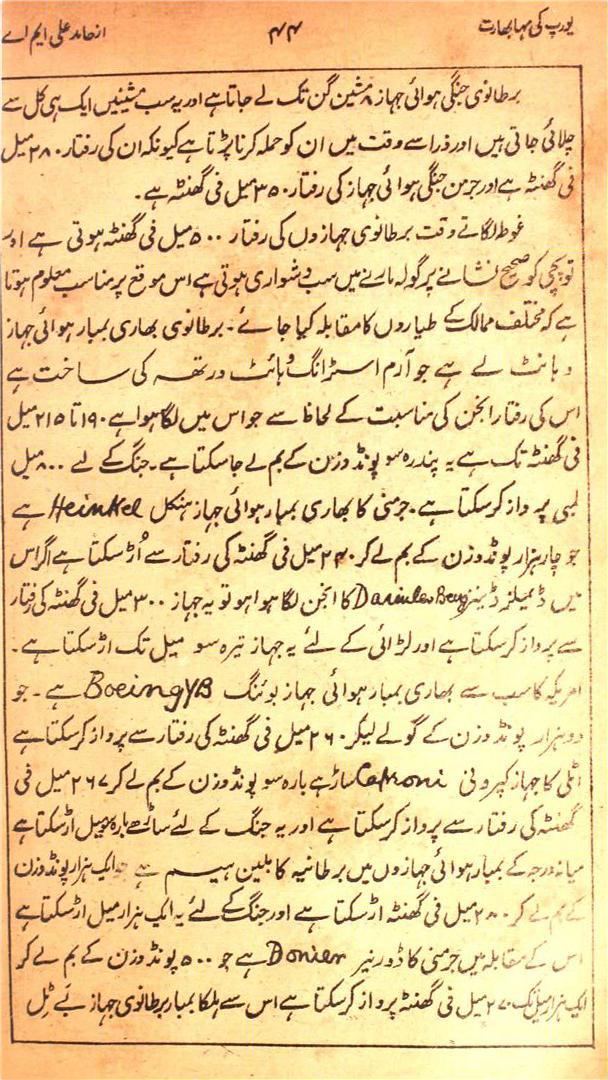 یورپ کی مہابھارت ۴۴ از حامد علی ایم اے
برطانوی جنگی ہوائی جہاز ۸ مشین گن تک لے جاتا ہے اور یہ سب مشینیں ایک ہی کل سے
چلائی جاتی ہیں اور ذرا سے وقت میں ان کو حملہ کرنا پڑتا ہے کیونکہ ان کی رفتار ۲۸۰ میل
فی گھنٹہ ہے اور جرمن جنگی ہوائی جہاز کی رفتار ۳۵۰ میل فی گھنٹہ ہے۔
غوطہ لگاتے وقت برطانوی جہازوں کی رفتار ۵۰۰ میل فی گھنٹہ ہوتی ہے اور
توپچی کو صحیح نشانے پر گولہ مارنے میں سب دشواری ہوتی ہے اس موقع پر مناسب معلوم ہوتا
ہے کہ مختلف ممالک کے طیاروں کا مقابلہ کیا جائے۔ برطانوی بھاری بمبار ہوائی جہاز
وہائٹ لے ہے جو آرم اسٹرانگ وہائٹ ورتھ کی ساخت ہے
اس کی رفتار انجن کی مناسبت کے لحاظ سے جو اس میں لگا ہوا ہے ۱۹۰ تا ۲۱۵ میل
فی گھنٹہ تک ہے یہ پندرہ سو پونڈ وزن کے بم لے جا سکتا ہے۔ جنگ کے لئے ۸۰۰ میل
لمبی پرواز کر سکتا ہے۔ جرمنی کا بھاری بمبار ہوائی جہاز ہنکل Heinkel ہے
جو چار ہزار پونڈ وزن کے بم لے کر ۲۴۰ میل فی گھنٹہ کی رفتار سے اُڑ سکتا ہے اگر اس
میں ڈیملر ڈینز کا انجن لگا ہوا ہو تو یہ جہاز ۳۰۰ میل فی گھنٹہ کی رفتار
سے پرواز کر سکتا ہے اور لڑائی کے لئے یہ جہاز تیرہ سو میل تک اڑ سکتا ہے۔
امریکہ کا سب سے بھاری بمبار ہوائی جہاز بوئنگ BoeingYB ہے۔ جو
دو ہزار پونڈ وزن کے گولے لیکر ۲۶۰ میل فی گھنٹہ کی رفتار سے پرواز کر سکتا ہے
اٹلی کا جہاز کپرونی Caproni ساڑہے بارہ سو پونڈ وزن کے بم لے کر ۲۶۷ میل فی
گھنٹہ کی رفتار سے پرواز کر سکتا ہے اور یہ جنگ کے لئے ساڑھے بارہ سو میل اڑ سکتا ہے
میانہ درجہ کے بمبار ہوائی جہازوں میں برطانیہ کا بلین ہیم ہے جو ایک ہزار پونڈ وزن
کے بم لے کر ۲۸۰ میل فی گھنٹہ اڑ سکتا ہے اور جنگ کے لئے یہ ایک ہزار میل اڑ سکتا ہے
اس کے مقابلہ میں جرمنی کا ڈورنیر Donier ہے جو ۵۰۰ پونڈ وزن کے بم لے کر
ایک ہزار میل تک ۲۷۰ میل فی گھنٹہ پرواز کر سکتا ہے اس سے ہلکا بمبار برطانوی جہاز بے ٹل